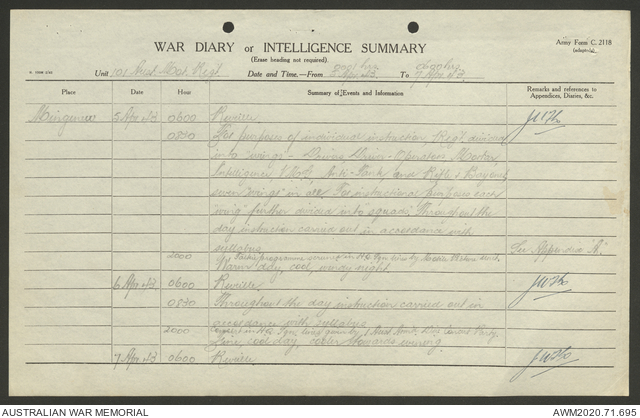 Army Form C. 2118
(adapted)
WAR DIARY or INTELLIGENCE SUMMARY
(Erase heading not required).
Unit 101 Aust Mot Regt
Date and Time.—From 0001 hrs 5 Apr 43. To 2400 hrs 7 Apr 43.
Place Date Hour Summary of Events and Information Remarks and references to Appendices, Diaries, &c.
Mingenew 5 Apr 43 0600 Reveille
0830 For purposes of individual instruction, Reg'l divided
into "wings" - Driving, Driver-Operators, Mortar,
Intelligence, Anti-Tank and Rifle & Bayonet,
seven "wings" in all. For instructional purposes each
"wing" further divided into "squads". Throughout the
day instruction carried out in accordance with
syllabus. Appendix "A".
2000 programme in HQ Sqn lines by
Warm day, cool, windy night.
6 Apr 43 0600 Reveille
0830 Throughout the day instruction carried out in
accordance with syllabus.
2000 Concert in HQ Sqn lines given by 1 Aust Concert Party.
Fine, cool day, cooler towards evening.
7 Apr 43 0600 Reveille.
AUSTRALIAN WAR MEMORIAL
AWM2020.71.695